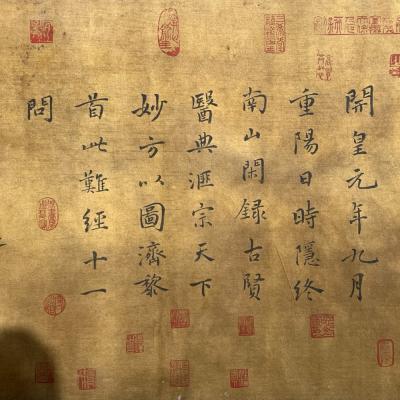 開皇元年九月
重陽日時隱终
南山閑録古賢
醫典滙宗天下
妙方以圖濟黎
首此難經十一
問